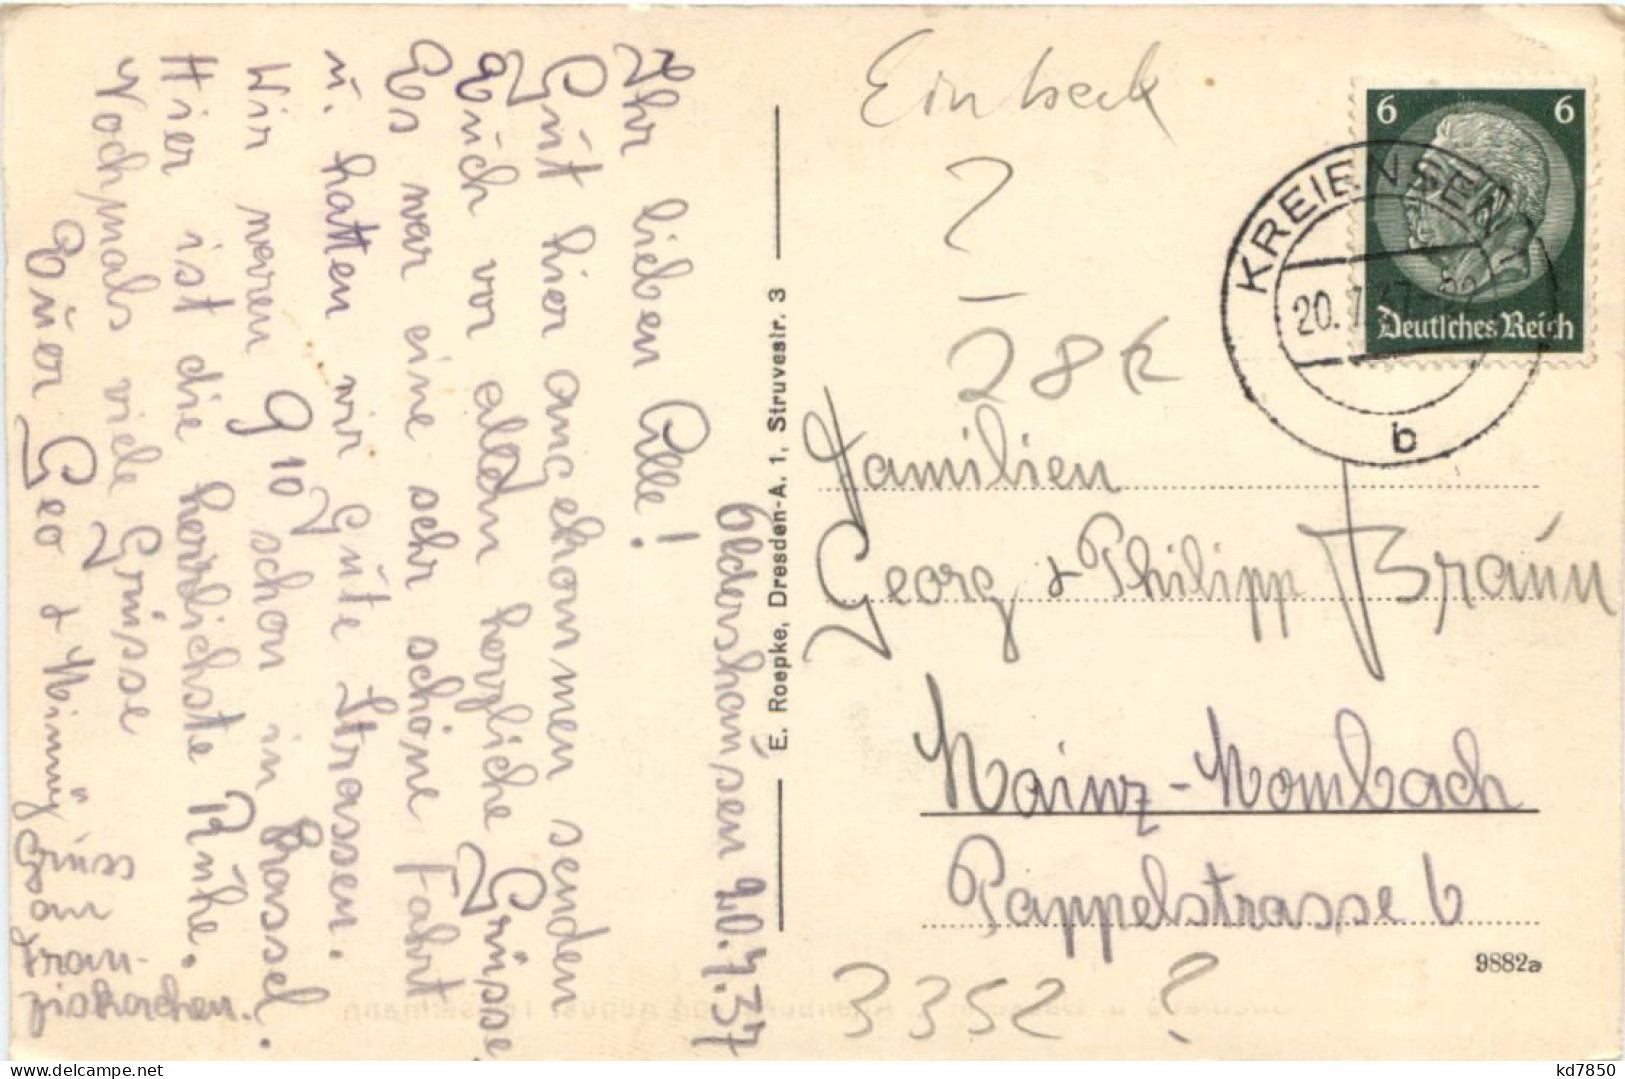 Oldershausen 20.7.37
Ihr lieben Alle!
Gut hier angekommen senden
Euch vor allem herzliche Grüsse
Es war eine sehr schöne Fahrt
u. hatten wir gute Strassen.
Wir waren 9 10 schon in Kassel.
Hier ist die herrlichste Ruhe.
Nochmals viele Grüsse
Euer Geo & Minny
Gruss
an
Fran-
ziskachen.
E. Roepke, Dresden-A. 1, Struvestr. 3
Einbeck
?
28
6 6
Deutsches Reich
KREIENSEN
20.7.37
b
Familien
Georg & Philipp Braun
Mainz-Mombach
Pappelstrasse 6
9882a
3352 ?
kd7850